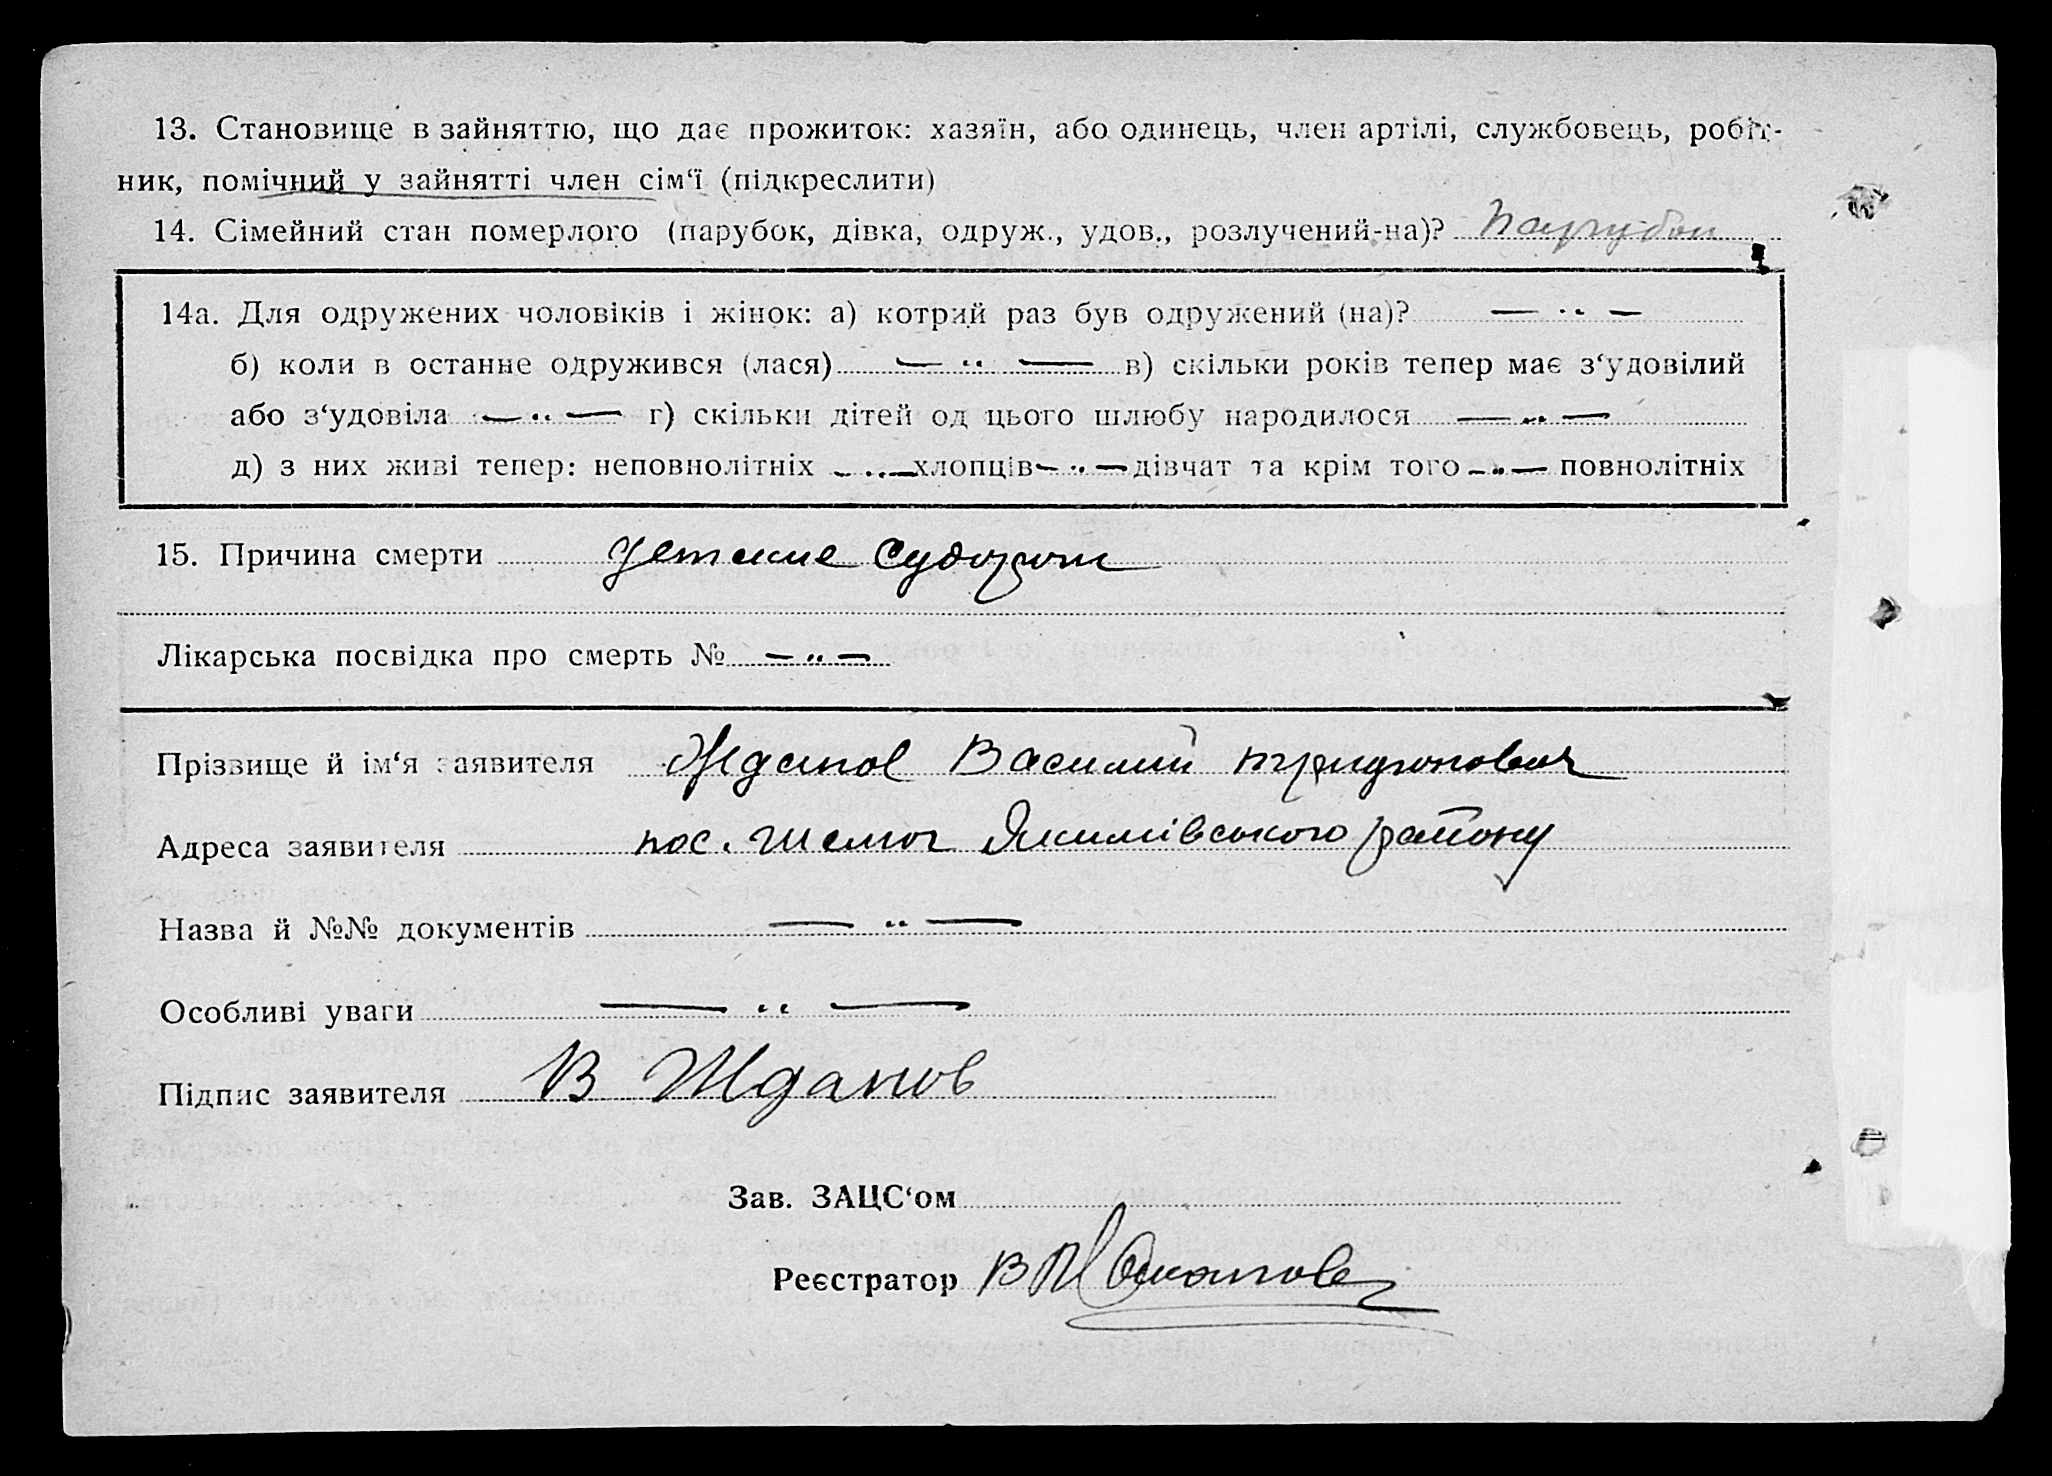 13. Становище в зайняттю, що дає прожиток: хазяїн, або одинець, член артілі, службовець, робіт-
ник, помічний у зайнятті член сім‘ї (підкреслити)
14. Сімейний стан померлого (парубок, дівка, одруж., удов., розлучений-на)? Парубок
14а. Для одружених чоловіків і жінок: а) котрий раз був одружений (на)? — ·· —
б) коли в останне одружився (лася) — ·· — в) скільки років тепер має з‘удовілий
або з‘удовіла — ·· — г) скільки дітей од цього шлюбу народилося — ·· —
д) з них живі тепер: неповнолітніх — ·· — хлопців — ·· — дівчат та крім того — ·· — повнолітніх
15. Причина смерти Детские судороги
Лікарська посвідка про смерть № — ·· —
Прізвище й ім‘я заявителя Жданов Василий
Адреса заявителя пос. Якимівського району
Назва й №№ документів — ·· —
Особливі уваги — ·· —
Підпис заявителя В Жданов
Зав. ЗАЦС‘ом
Реєстратор